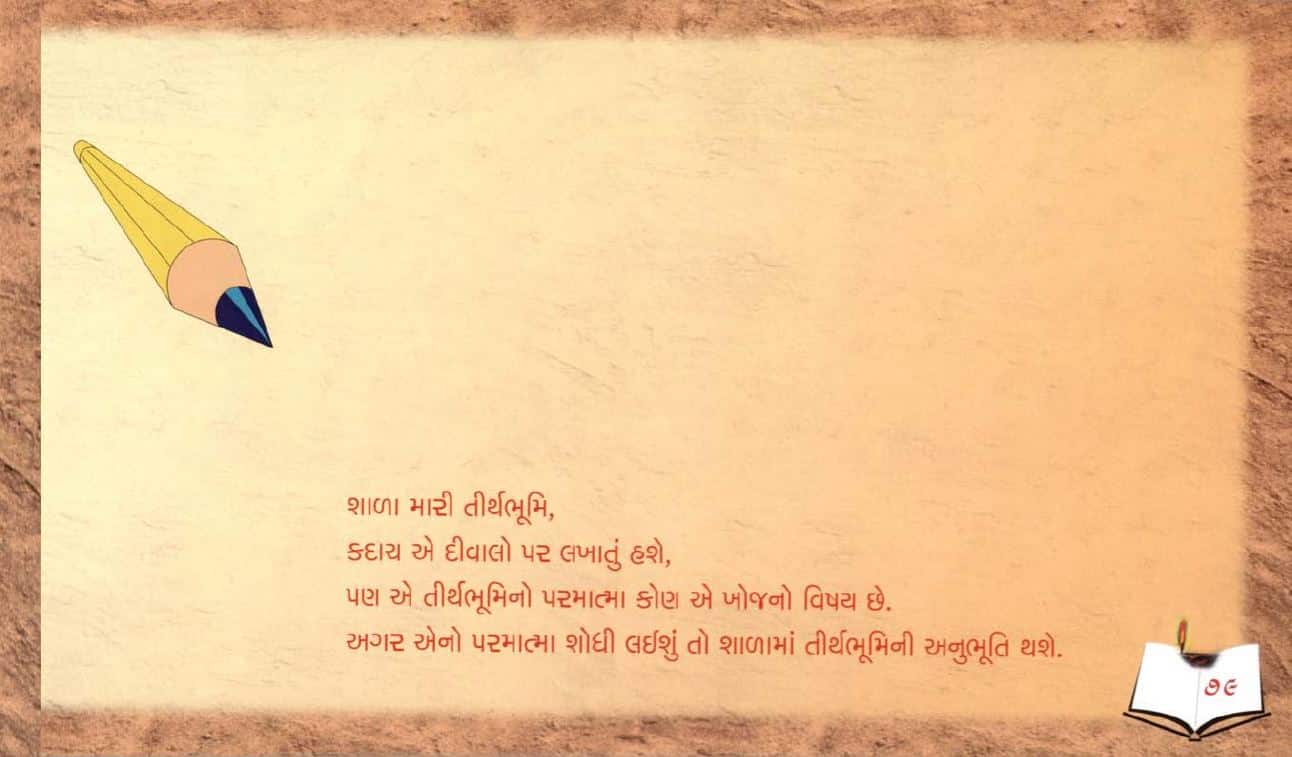 શાળા મારી તીર્થભૂમિ,
કદાચ એ દીવાલો પર લખાતું હશે,
પણ એ તીર્થભૂમિનો પરમાત્મા કોણ એ ખોજનો વિષય છે.
અગર એનો પરમાત્મા શોધી લઈશું તો શાળામાં તીર્થભૂમિની અનુભૂતિ થશે.
૭૯